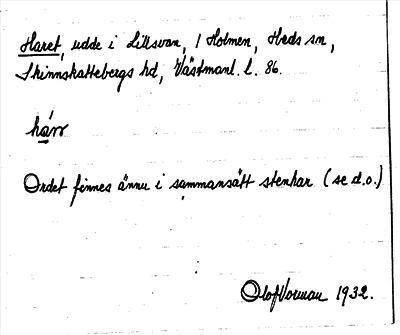 Haret, udde i Lillsvan, 1 Holmen, Heds sn,
Skinnskattebergs hd, Västmanl. l. 86.
hárr
Ordet finnes ännu i sammansätt stenhar (se d.o.)
Olof Vorman 1932.